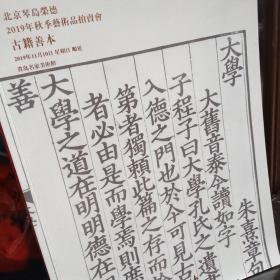 北京琴島榮德
2019年秋季藝術品拍賣會
古籍善本
2019年11月10日 星期日
大學 朱熹章句
大舊音泰今讀如字
子程子曰大學孔氏之遺
入德之門也於今可見古
第者獨賴此篇之存而
者必由是而學焉則庶
大學之道在明明德在
善